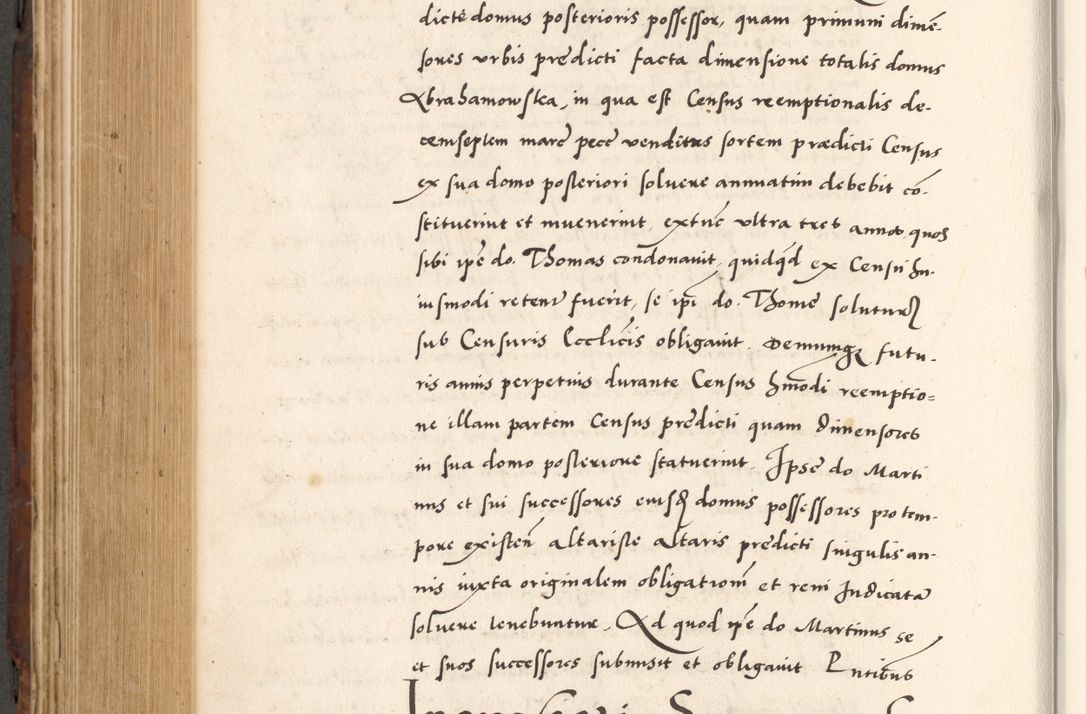 dicte domus posterioris possessor, quam primum dimē-
sores urbis predicti facta dimensione totalis domus
Abrahamowska, in qua est Census reemptionalis de-
cemseptem marc pecc venditus sortem prædicti Census
ex sua domo posteriori soluere annuatim debebit cō-
stituerint et inuenerint, extūc vltra tres annos quos
sibi ipē do. Thomas condonauit, quidqd ex Censu hu-
iusmodi retent fuerit, se ipi do. Thome soluturū
sub Censuris Ecclicis obligauit. Demumqʒ futu-
ris annis perpetuis durante Census hmōdi reemptio=
ne illam partem Census predicti quam dimensores
in sua domo posteriore statuerint. Ipse do Marti
nus et sui successores eiusqʒ domus possessores pro tem-
pore existen altariste altaris predicti singulis an-
nis iuxta originalem obligationem et rem Iudicata
soluere tenebuntur. Ad quod ipē do Martinus se
et suos successores submisit et obligauit Pntibus